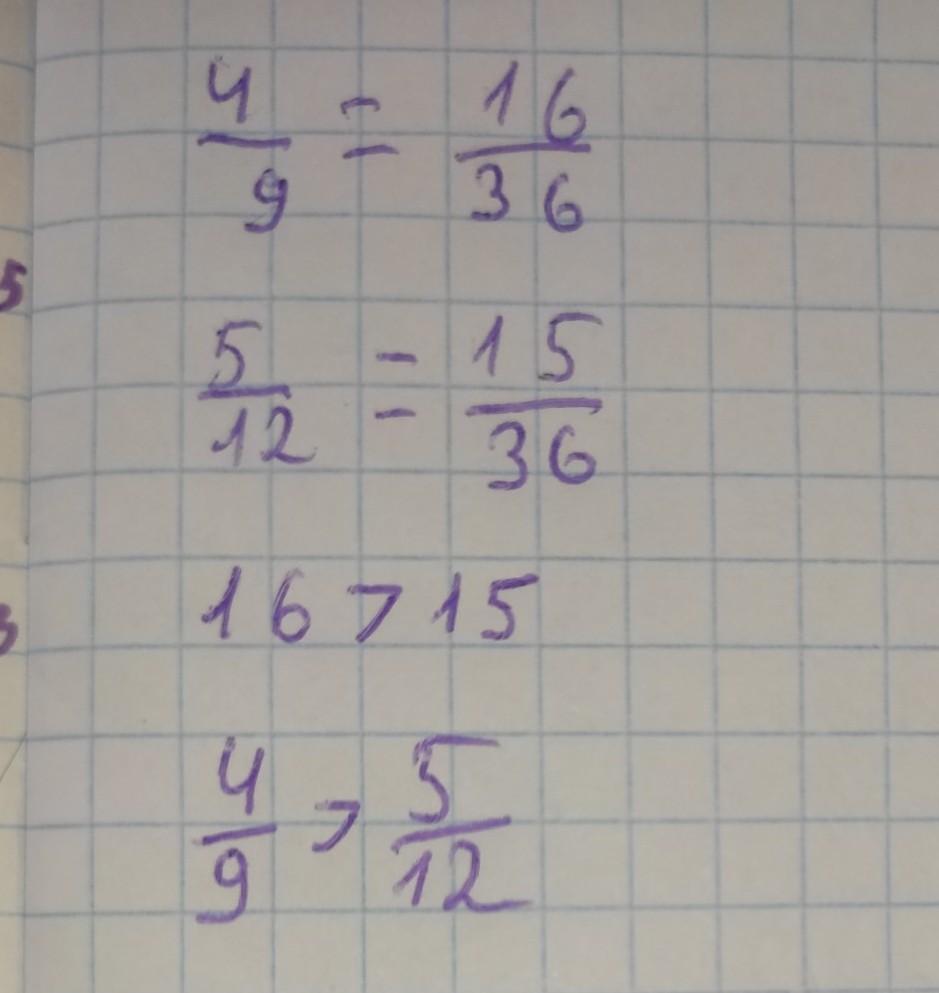 4/9 = 16/36
5
5/12 = 15/36
16 > 15
4/9 > 5/12